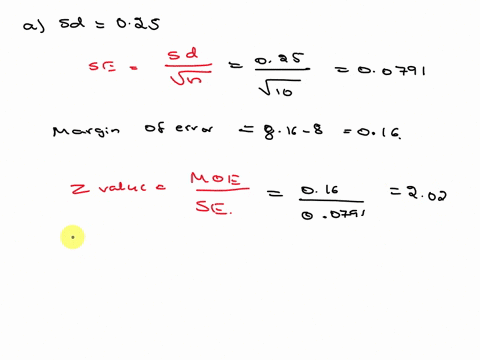 a) Sd = 0.25
SE = Sd/√n = 0.25/√10 = 0.0791
Margin of error = 8.16-8 = 0.16.
Z value = MOE/SE. = 0.16/0.0791 = 2.02